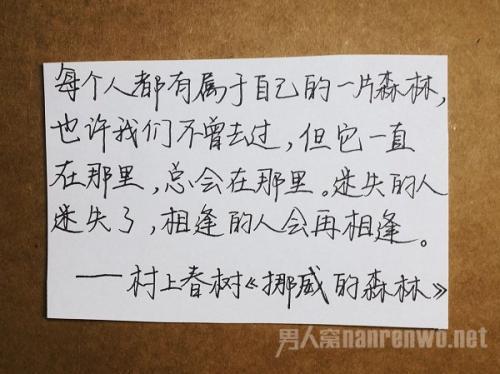 每个人都有属于自己的一片森林，
也许我们不曾去过，但它一直
在那里，总会在那里。迷失的人
迷失了，相逢的人会再相逢。
——村上春树《挪威的森林》
男人窝nanrenwo.net